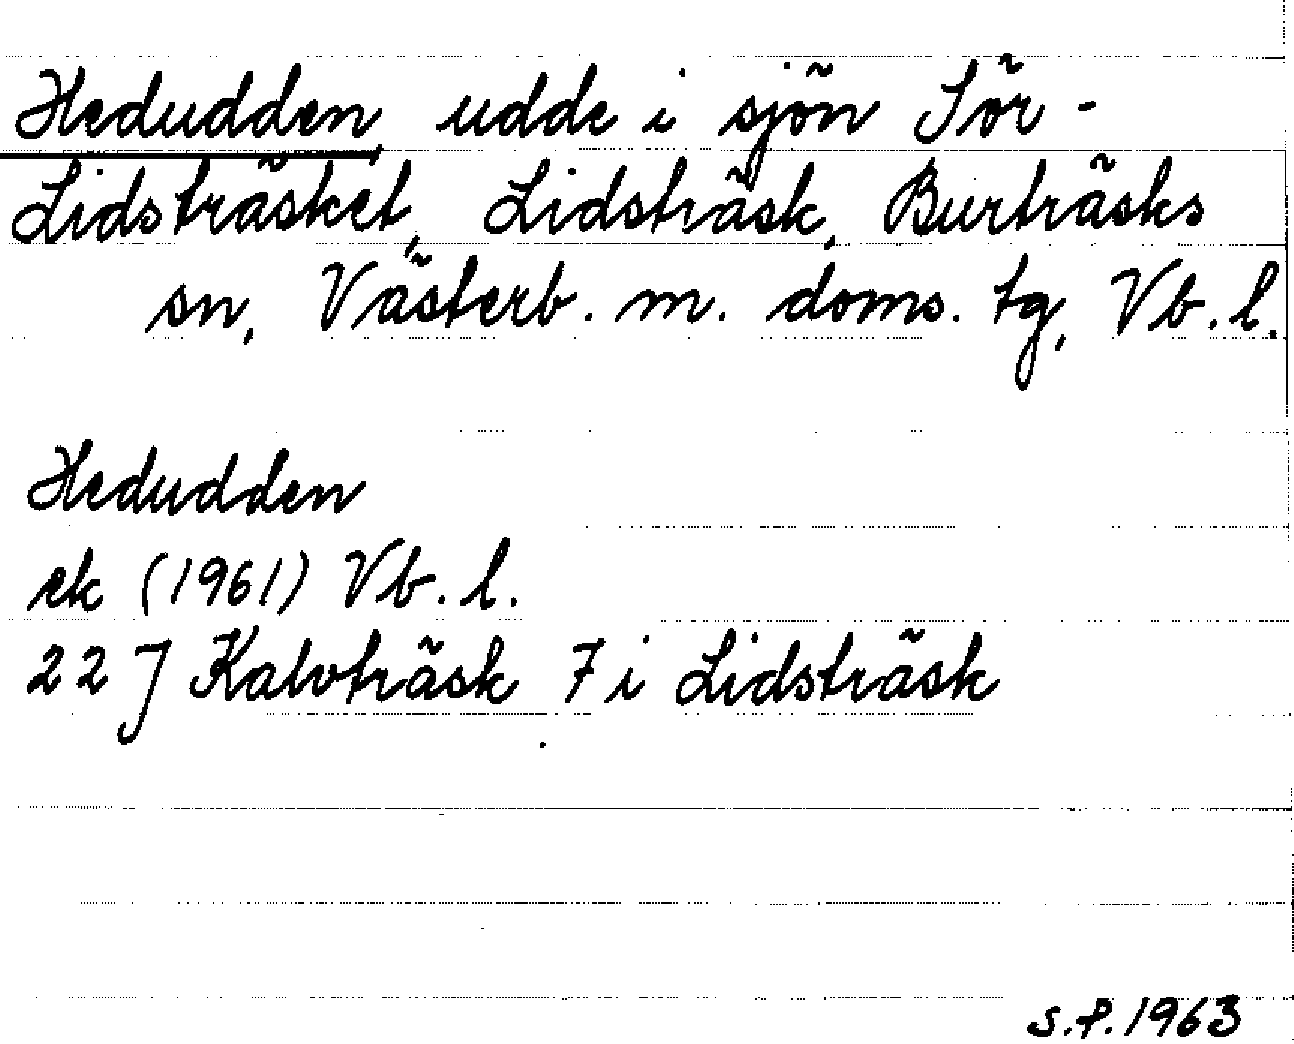 Hedudden, udde i sjön Sör-
Lidsträsket, Lidsträsk, Burträsks
sn, Västerb. m. doms. tg, Vb. l.
Hedudden
ek (1961) Vb. l.
22 J Kalvträsk 7 i Lidsträsk
s.p. 1963